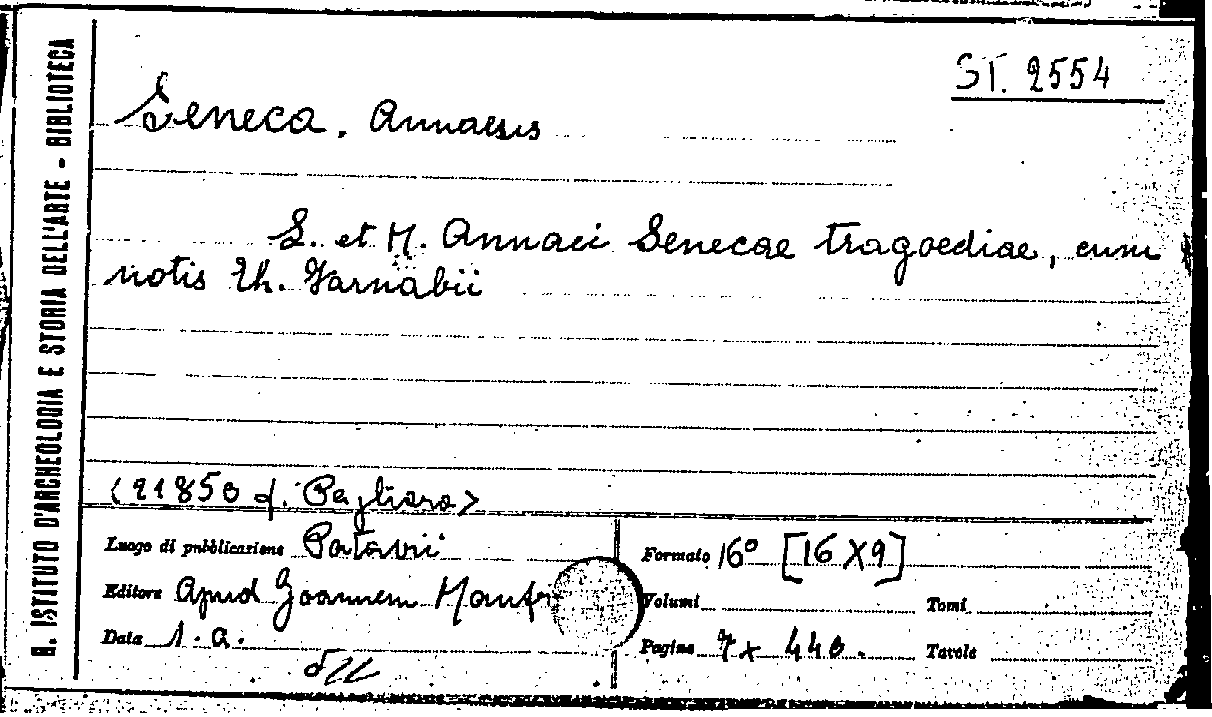 B. ISTITUTO D'ARCHEOLOGIA E STORIA DELL'ARTE - BIBLIOTECA
ST. 2554
Seneca, Annaeus
L. et M. Annaei Senecae tragoediae, cum
notis Th. Farnabii
(21850 d. Pagliara)
Luogo di pubblicazione Patavii
Editore Apud Joannem Manfr
Data s. a.
Formato 16° [16 X 9]
Volumi Tomi
Pagine 440. Tavole